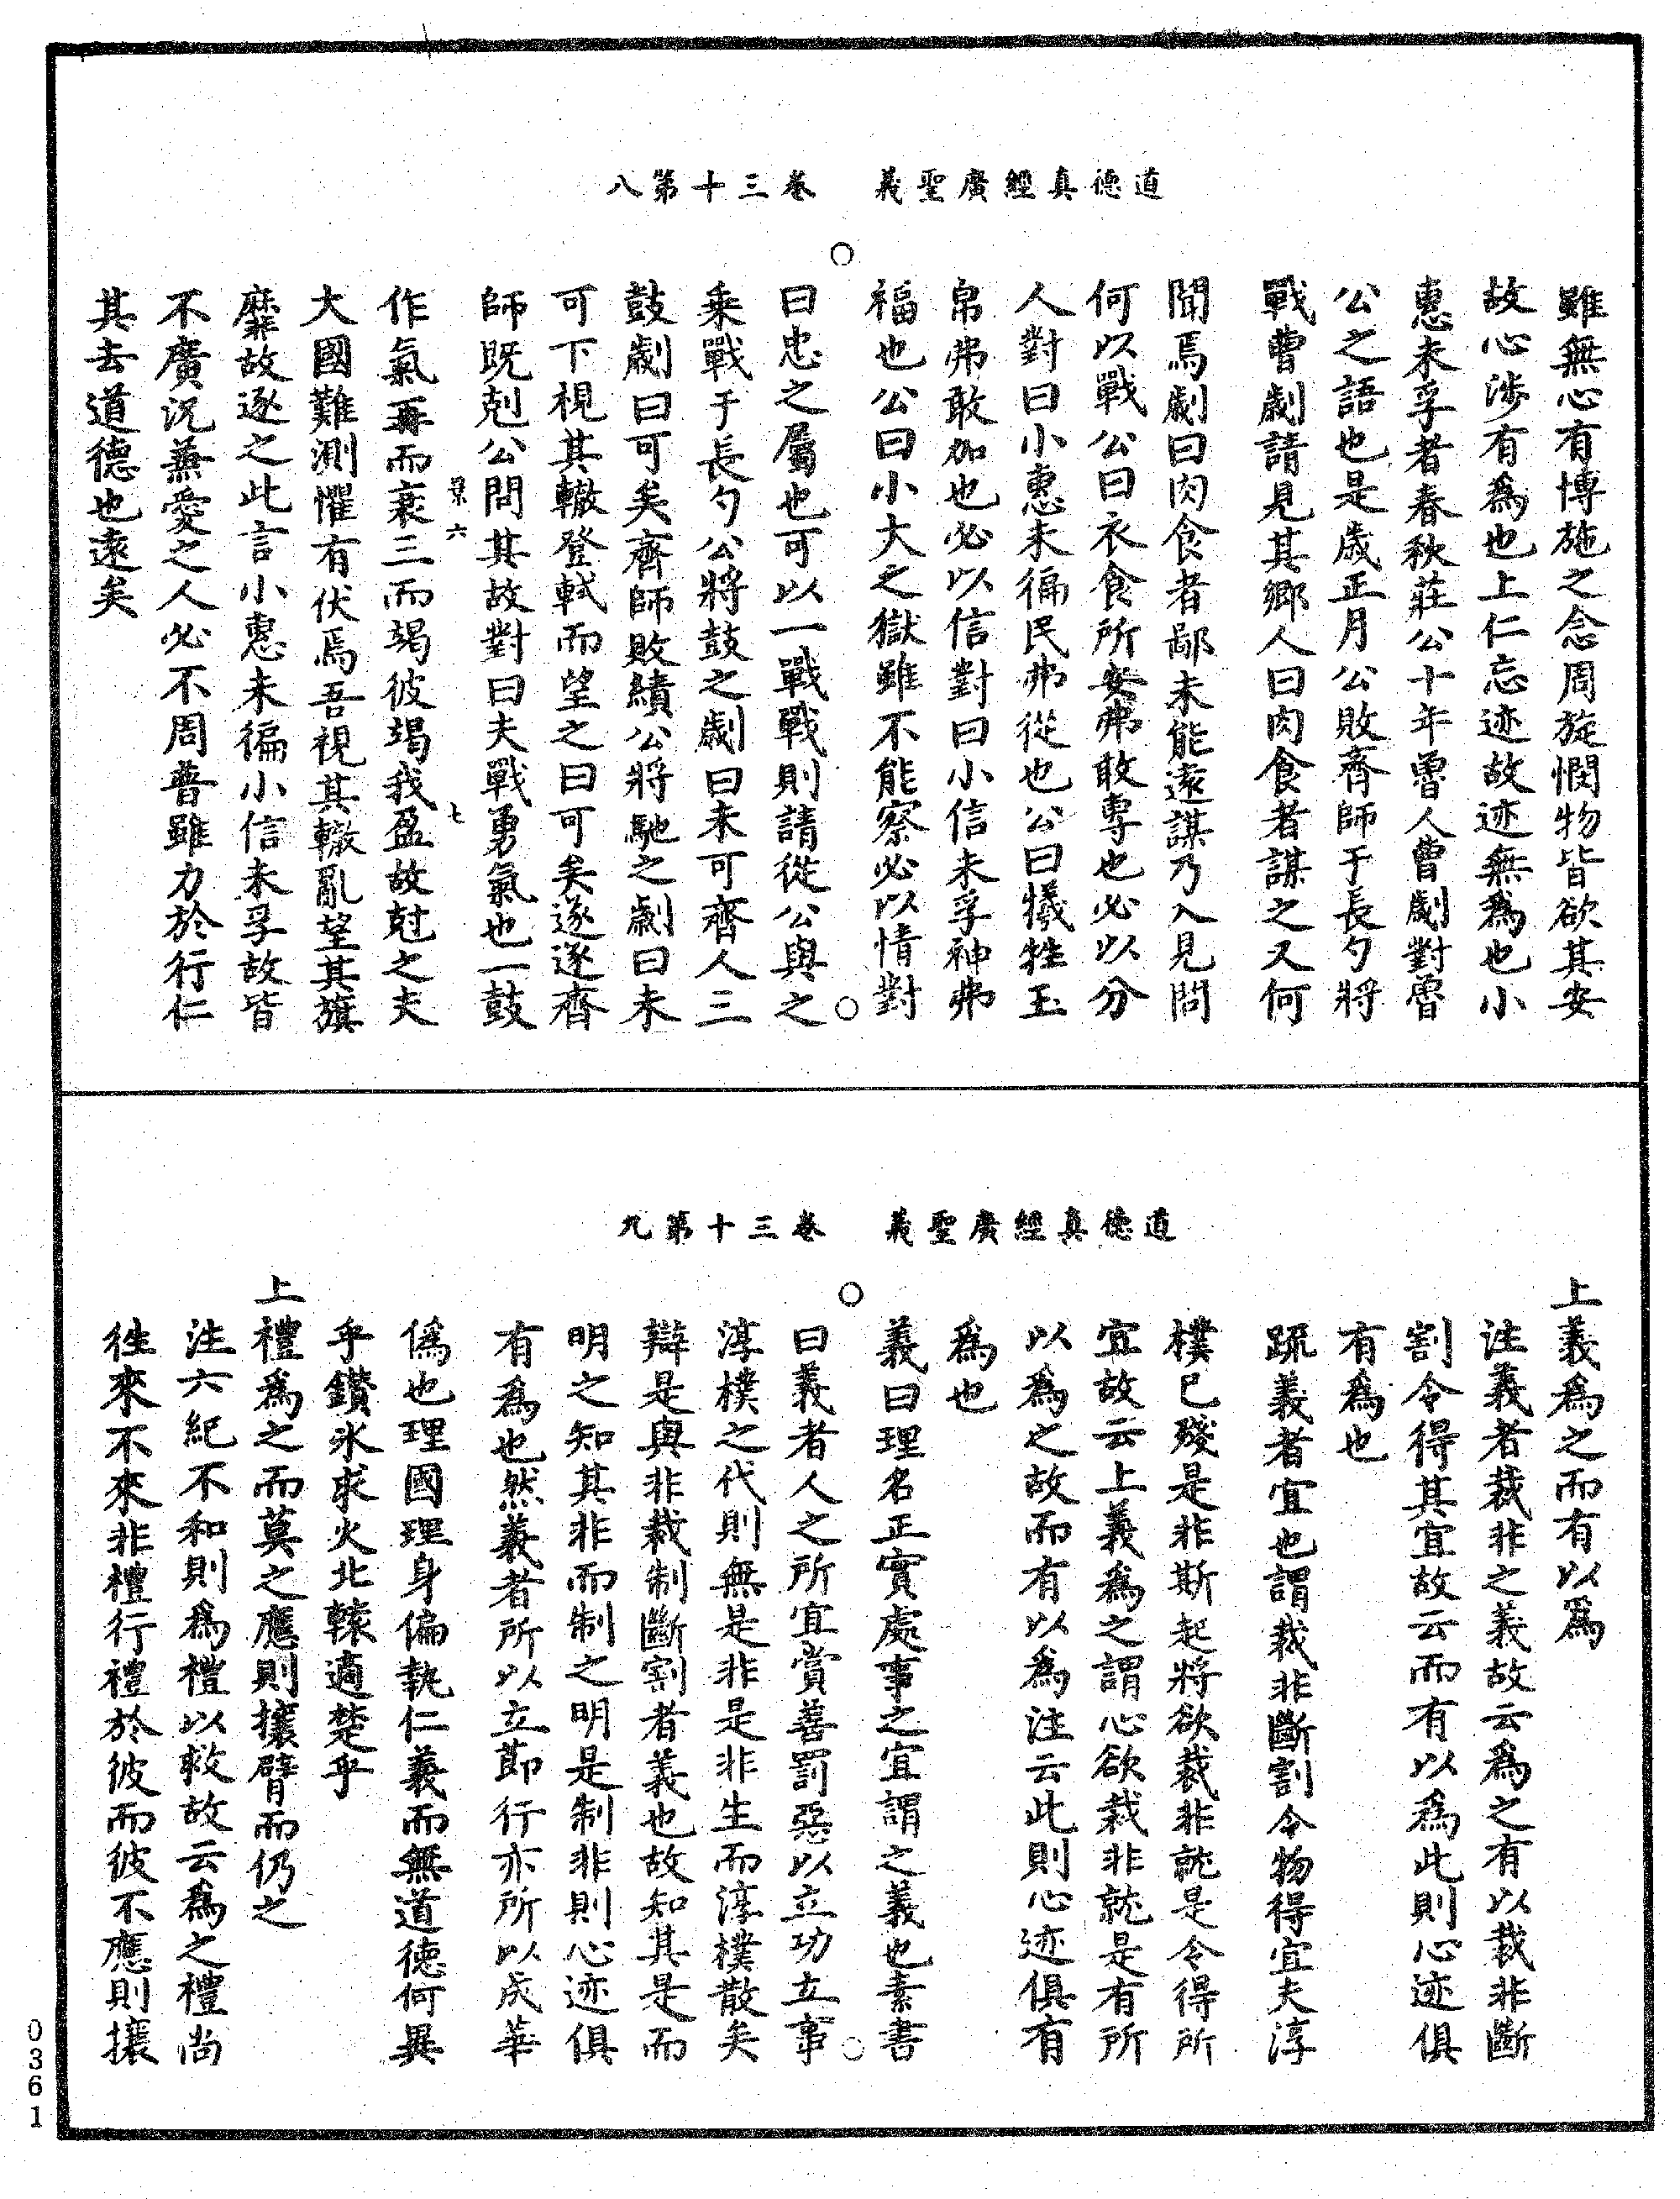 道德真經廣聖義　卷三十第八
雖無心有博施之念周旋憫物皆欲其安
故心涉有為也上仁忘迹故迹無為也小
惠未孚者春秋莊公十年魯人曹劌對魯
公之語也是歲正月公敗齊師于長勺將
戰曹劌請見其鄉人曰肉食者謀之又何
間焉劌曰肉食者鄙未能遠謀乃入見問
何以戰公曰衣食所安弗敢專也必以分
人對曰小惠未徧民弗從也公曰犧牲玉
帛弗敢加也必以信對曰小信未孚神弗
福也公曰小大之獄雖不能察必以情對
曰忠之屬也可以一戰戰則請從公與之
乘戰于長勺公將鼓之劌曰未可齊人三
鼓劌曰可矣齊師敗績公將馳之劌曰未
可下視其轍登軾而望之曰可矣遂逐齊
師既剋公問其故對曰夫戰勇氣也一鼓
六　七
作氣再而衰三而竭彼竭我盈故尅之夫
大國難測懼有伏焉吾視其轍亂望其旗
靡故逐之此言小惠未徧小信未孚故皆
不廣況兼愛之人必不周普雖力於行仁
其去道德也遠矣
道德真經廣聖義　卷三十第九
上義為之而有以為
注義者裁非之義故云為之有以裁非斷
割令得其宜故云而有以為此則心迹俱
有為也
疏義者宜也謂裁非斷割令物得宜夫淳
樸已殘是非斯起將欲裁非就是令得所
宜故云上義為之謂心欲裁非就是有所
以為之故而有以為注云此則心迹俱有
為也
義曰理名正實處事之宜謂之義也素書
曰義者人之所宜賞善罰惡以立功立事
淳樸之代則無是非是非生而淳樸散矣
辯是與非裁制斷割者義也故知其是而
明之知其非而制之明是制非則心迹俱
有為也然義者所以立節行亦所以成華
偽也理國理身偏執仁義而無道德何異
乎鑽氷求火北轅適楚乎
上禮為之而莫之應則攘臂而仍之
注六紀不和則為禮以救故云為之禮尚
往來不來非禮行禮於彼而彼不應則攘
0361